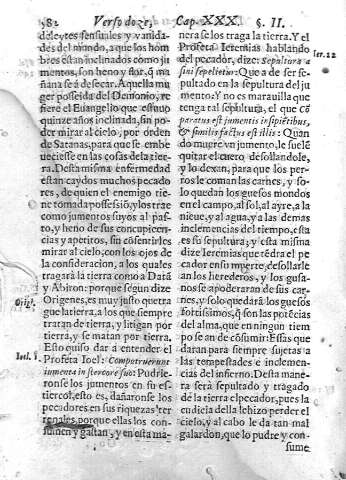 582 Verso de 27, Cap. XXX. §. II.
deleytes sensuales y vanida-
des del mundo, a que los hom
bres están inclinados como ju
mentos, son heno y flor, q̃ ma
ñana se à de secar. Aquella mu
ger posseida del Demonio, re
fiere el Euangelio que estuuo
quinze años inclinada, sin po-
der mirar al cielo, por orden
de Satanas, para que se embe
ueciesse en las cosas de la tier-
ra. Desta misma enfermedad
estan caydos muchos pecado
res, de quien el enemigo tie-
ne tomada possessiõ, y los trae
como jumentos suyos al pas-
to, y heno de sus concupicen-
cias y apetitos, sin cõsentirles
mirar al cielo, con los ojos de
la consideracion, a los quales
tragará la tierra como a Datã
y Abiron: porque segun dize
Orig.
Origenes, es muy justo que tra
gue la tierra, a los que siempre
tratan de tierra, y litigan por
tierra, y se matan por tierra.
Esto quiso dar a entender el
Ioel. 1.
Profeta Ioel: Computruerunt
iumenta in stercore suo: Pudrie-
ronse los jumentos en su es-
tiercol, esto es, dañaronse los
pecadores en sus riquezas ter
renales, porque ellos los con-
sumen y gastan, y en esta ma-
nera se los traga la tierra. Y el
Profeta Ieremias hablando
Ier. 22
del pecador, dize: Sepultura a-
sini sepelietur: Que a de ser se-
pultado en la sepultura del ju
mento? Y no es marauilla que
tenga tal sepultura, el que cõ
paratus est iumentis insipiẽtibus,
& similis factus est illis: Quan
do muere vn jumento, le suelẽ
quitar el cuero desollandole,
y lo dexan, para que los per-
ros le coman las carnes, y so-
lo quedan los guesos mondos
en el campo, al sol, al ayre, a la
nieue, y al agua, y a las demas
inclemencias del tiempo, esta
es su sepultura; y esta misma
dize Ieremias que tẽdra el pe
cador en su muerte, desollarle
an los herederos, y los gusa-
nos se apoderaran de sus car-
nes, y solo quedarã los guesos
fortissimos, q̃ son las potẽcias
del alma, que en ningun tiem
po se an de cõsumir: Essas que
daran para siempre sujetas a
las tempestades e inclemen-
cias del infierno. Desta mane-
ra será sepultado y tragado
de la tierra el pecador, pues la
cudicia della le hizo perder el
cielo, y al cabo le da tan mal
galardon, que lo pudre y con-
sume